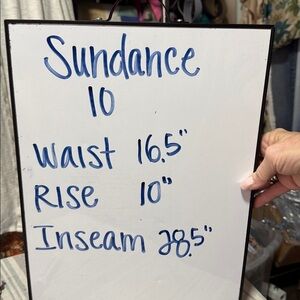 Sundance
10
Waist 16.5"
Rise 10"
Inseam 28.5"